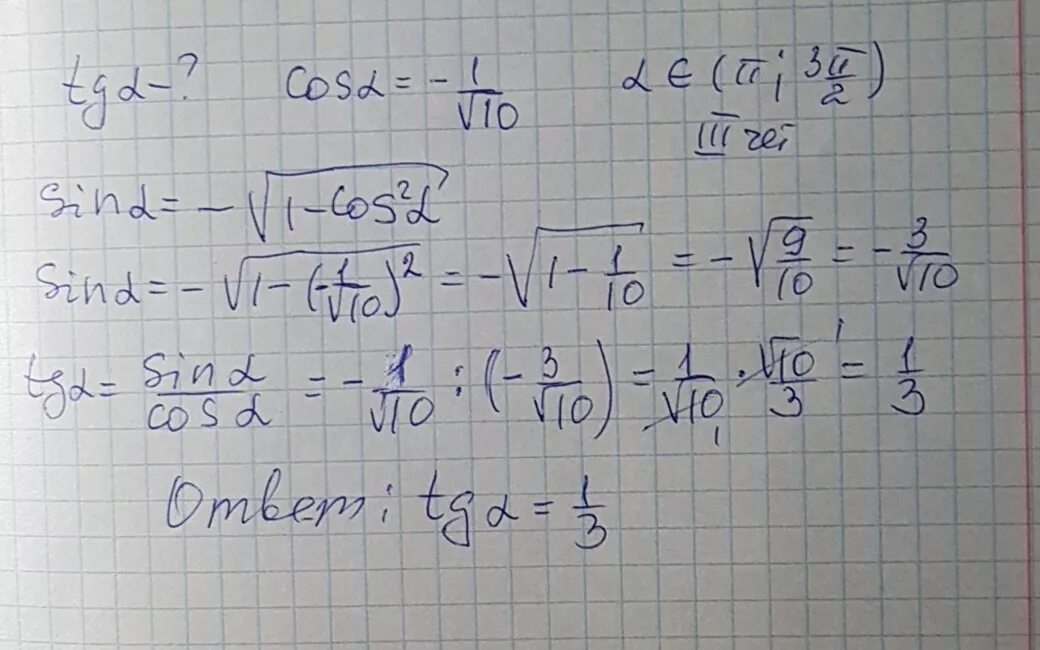 tgα-? cosα = -1/√10 α ∈ (π; 3π/2)
III чет
sinα = -√(1-cos²α)
sinα = -√(1-(-1/√10)²) = -√(1-1/10) = -√(9/10) = -3/√10
tgα = sinα/cosα = -1/√10 : (-3/√10) = 1/√10 · √10/3 = 1/3
Ответ: tgα = 1/3